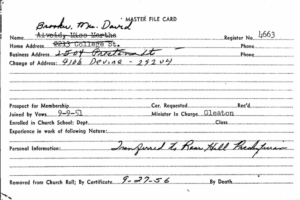 MASTER FILE CARD
Brooker, Mrs. David
Name Aivoid, Miss Martha Register No. 4663
Home Address 0213 College St. Phone
Business Address 2504 Phone
Change of Address: 4106 Devine - 29204
Prospect for Membership Cor. Requested Rec'd
Joined by Vows 9-9-51 Minister In Charge Gleaton
Enrolled in Church School: Dept. Class
Experience in work of following Nature:
Personal Information: Transferred to Rose Hill Presbyterian
Removed from Church Roll; By Certificate 9-27-56 By Death